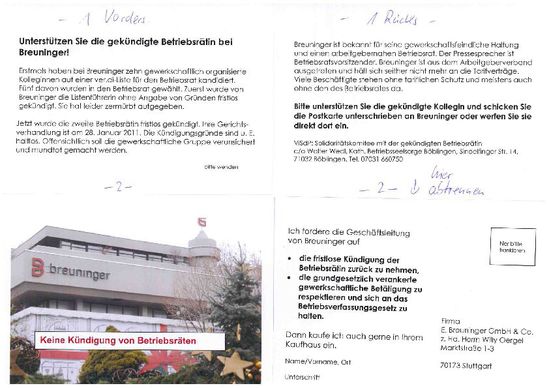 1 Vorders.
Unterstützen Sie die gekündigte Betriebsrätin bei
Breuninger!
Erstmals haben bei Breuninger zehn gewerkschaftlich organisierte
Kolleginnen auf einer ver.di-Liste für den Betriebsrat kandidiert.
Fünf davon wurden in den Betriebsrat gewählt. Zuerst wurde von
Breuninger die Listenführerin ohne Angabe von Gründen fristlos
gekündigt. Sie hat leider zermürbt aufgegeben.
Jetzt wurde die zweite Betriebsrätin fristlos gekündigt. Ihre Gerichts-
verhandlung ist am 28. Januar 2011. Die Kündigungsgründe sind u. E.
haltlos. Offensichtlich soll die gewerkschaftliche Gruppe verunsichert
und mundtot gemacht werden.
bitte wenden
- 2 -
1 Rücks.
Breuninger ist bekannt für seine gewerkschaftsfeindliche Haltung
und einen arbeitgebernahen Betriebsrat. Der Pressesprecher ist
Betriebsratsvorsitzender. Breuninger ist aus dem Arbeitgeberverband
ausgetreten und hält sich seither nicht mehr an die Tarifverträge.
Viele Beschäftigte stehen ohne tariflichen Schutz und meistens auch
ohne den des Betriebsrates da.
Bitte unterstützen Sie die gekündigte Kollegin und schicken Sie
die Postkarte unterschrieben an Breuninger oder werfen Sie sie
direkt dort ein.
ViSdP: Solidaritätskomitee mit der gekündigten Betriebsrätin
c/o Walter Wedl, Kath. Betriebsseelsorge Böblingen, Sindelfinger Str. 14,
71032 Böblingen, Tel. 07031 660750
- 2 - hier
abtrennen
breuninger
Keine Kündigung von Betriebsräten
Ich fordere die Geschäftsleitung
von Breuninger auf
• die fristlose Kündigung der
Betriebsrätin zurück zu nehmen,
• die grundgesetzlich verankerte
gewerkschaftliche Betätigung zu
respektieren und sich an das
Betriebsverfassungsgesetz zu
halten.
Dann kaufe ich auch gerne in Ihrem
Kaufhaus ein.
Name/Vorname, Ort
Unterschrift
Hier bitte
frankieren
Firma
E. Breuninger GmbH & Co.
z. Hd. Herrn Willy Oergel
Marktstraße 1-3
70173 Stuttgart